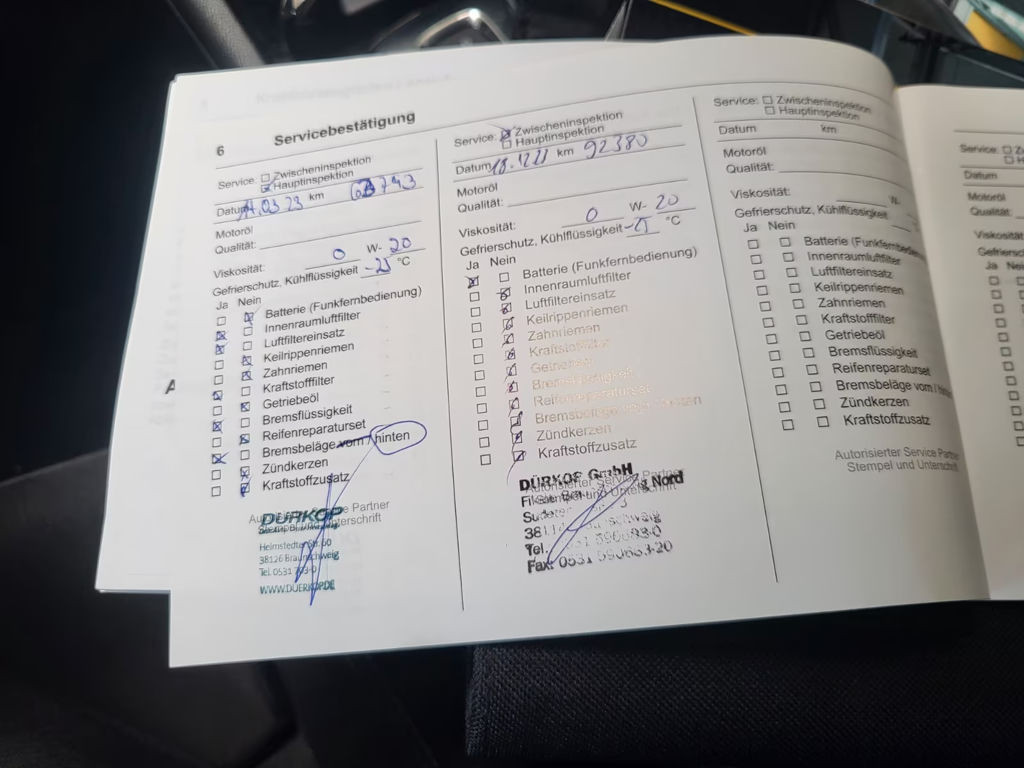 6 Servicebestätigung
Service: Zwischeninspektion
Hauptinspektion
Datum 03 23 km
Motoröl
Qualität:
Viskosität: 0 W- 20
Gefrierschutz, Kühlflüssigkeit -25 °C
Ja Nein
Batterie (Funkfernbedienung)
Innenraumluftfilter
Luftfiltereinsatz
Keilrippenriemen
Zahnriemen
Kraftstofffilter
Getriebeöl
Bremsflüssigkeit
Reifenreparaturset
Bremsbeläge vorn / hinten
Zündkerzen
Kraftstoffzusatz
Partner
Unterschrift
DÜRKOP
Helmstedter Str. 60
38126 Braunschweig
Tel. 0531
WWW.DUERKOP.DE
Service: Zwischeninspektion
Hauptinspektion
Datum km 92380
Motoröl
Qualität:
Viskosität: 0 W- 20
Gefrierschutz, Kühlflüssigkeit -25 °C
Ja Nein
Batterie (Funkfernbedienung)
Innenraumluftfilter
Luftfiltereinsatz
Keilrippenriemen
Zahnriemen
Kraftstofffilter
Getriebeöl
Bremsflüssigkeit
Reifenreparaturset
Bremsbeläge
Zündkerzen
Kraftstoffzusatz
DÜRKOP GmbH
Autorisierter Service Partner
Stempel und Unterschrift
Nord
Tel.
Fax: 0531 590633-20
Service: Zwischeninspektion
Hauptinspektion
Datum km
Motoröl
Qualität:
Viskosität: W-
Gefrierschutz, Kühlflüssigkeit
Ja Nein
Batterie
Innenraumluftfilter
Luftfiltereinsatz
Keilrippenriemen
Zahnriemen
Kraftstofffilter
Getriebeöl
Bremsflüssigkeit
Reifenreparaturset
Bremsbeläge vorn /
Zündkerzen
Kraftstoffzusatz
Autorisierter Service Partner
Stempel und Unterschrift
Service:
Datum
Motoröl
Qualität:
Ja Nein